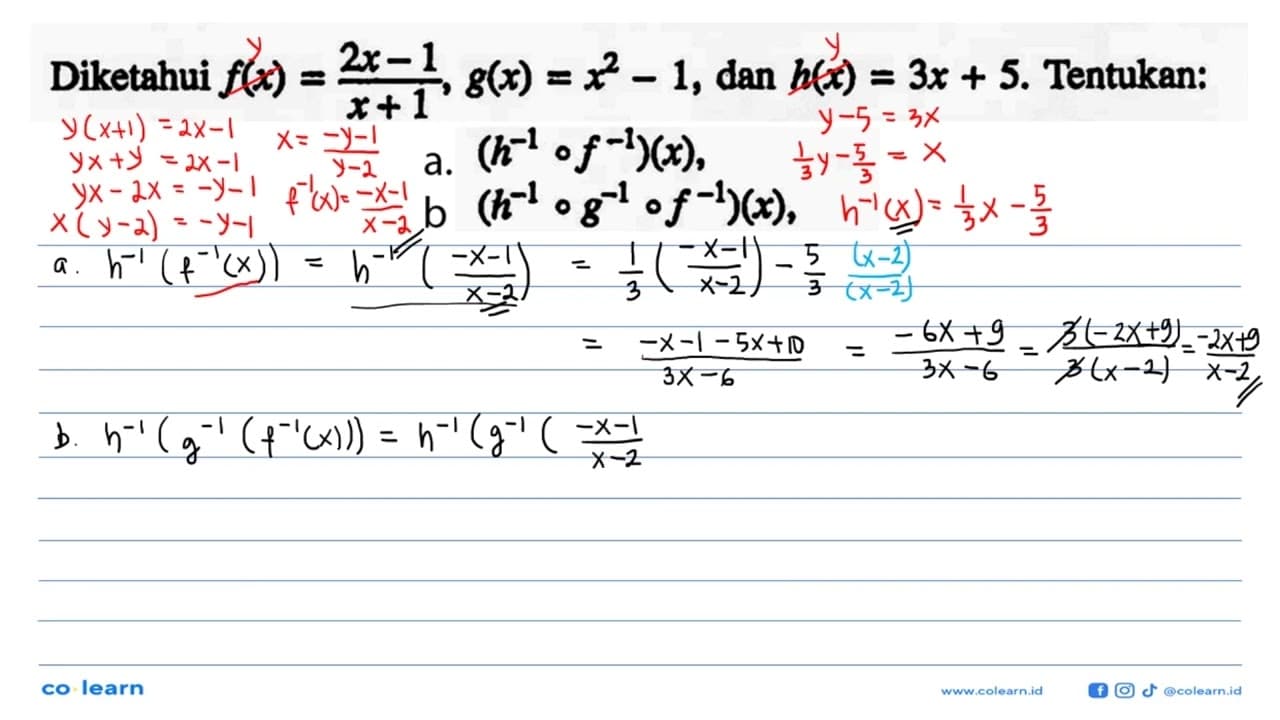 Diketahui f(x) = (2x-1)/(x+1), g(x) = x² - 1, dan h(x) = 3x + 5. Tentukan:
y
y
y(x+1) = 2x-1
yx+y = 2x-1
yx-2x = -y-1
x(y-2) = -y-1
x = (-y-1)/(y-2)
f⁻¹(x) = (-x-1)/(x-2)
a. (h⁻¹ ∘ f⁻¹)(x),
b (h⁻¹ ∘ g⁻¹ ∘ f⁻¹)(x),
y-5 = 3x
1/3 y - 5/3 = x
h⁻¹(x) = 1/3 x - 5/3
a. h⁻¹(f⁻¹(x)) = h⁻¹((-x-1)/(x-2)) = 1/3((-x-1)/(x-2)) - 5/3 (x-2)/(x-2)
= (-x-1-5x+10)/(3x-6) = (-6x+9)/(3x-6) = 3(-2x+9)/3(x-2) = (-2x+9)/(x-2)
b. h⁻¹(g⁻¹(f⁻¹(x))) = h⁻¹(g⁻¹((-x-1)/(x-2)
co learn
www.colearn.id
@colearn.id